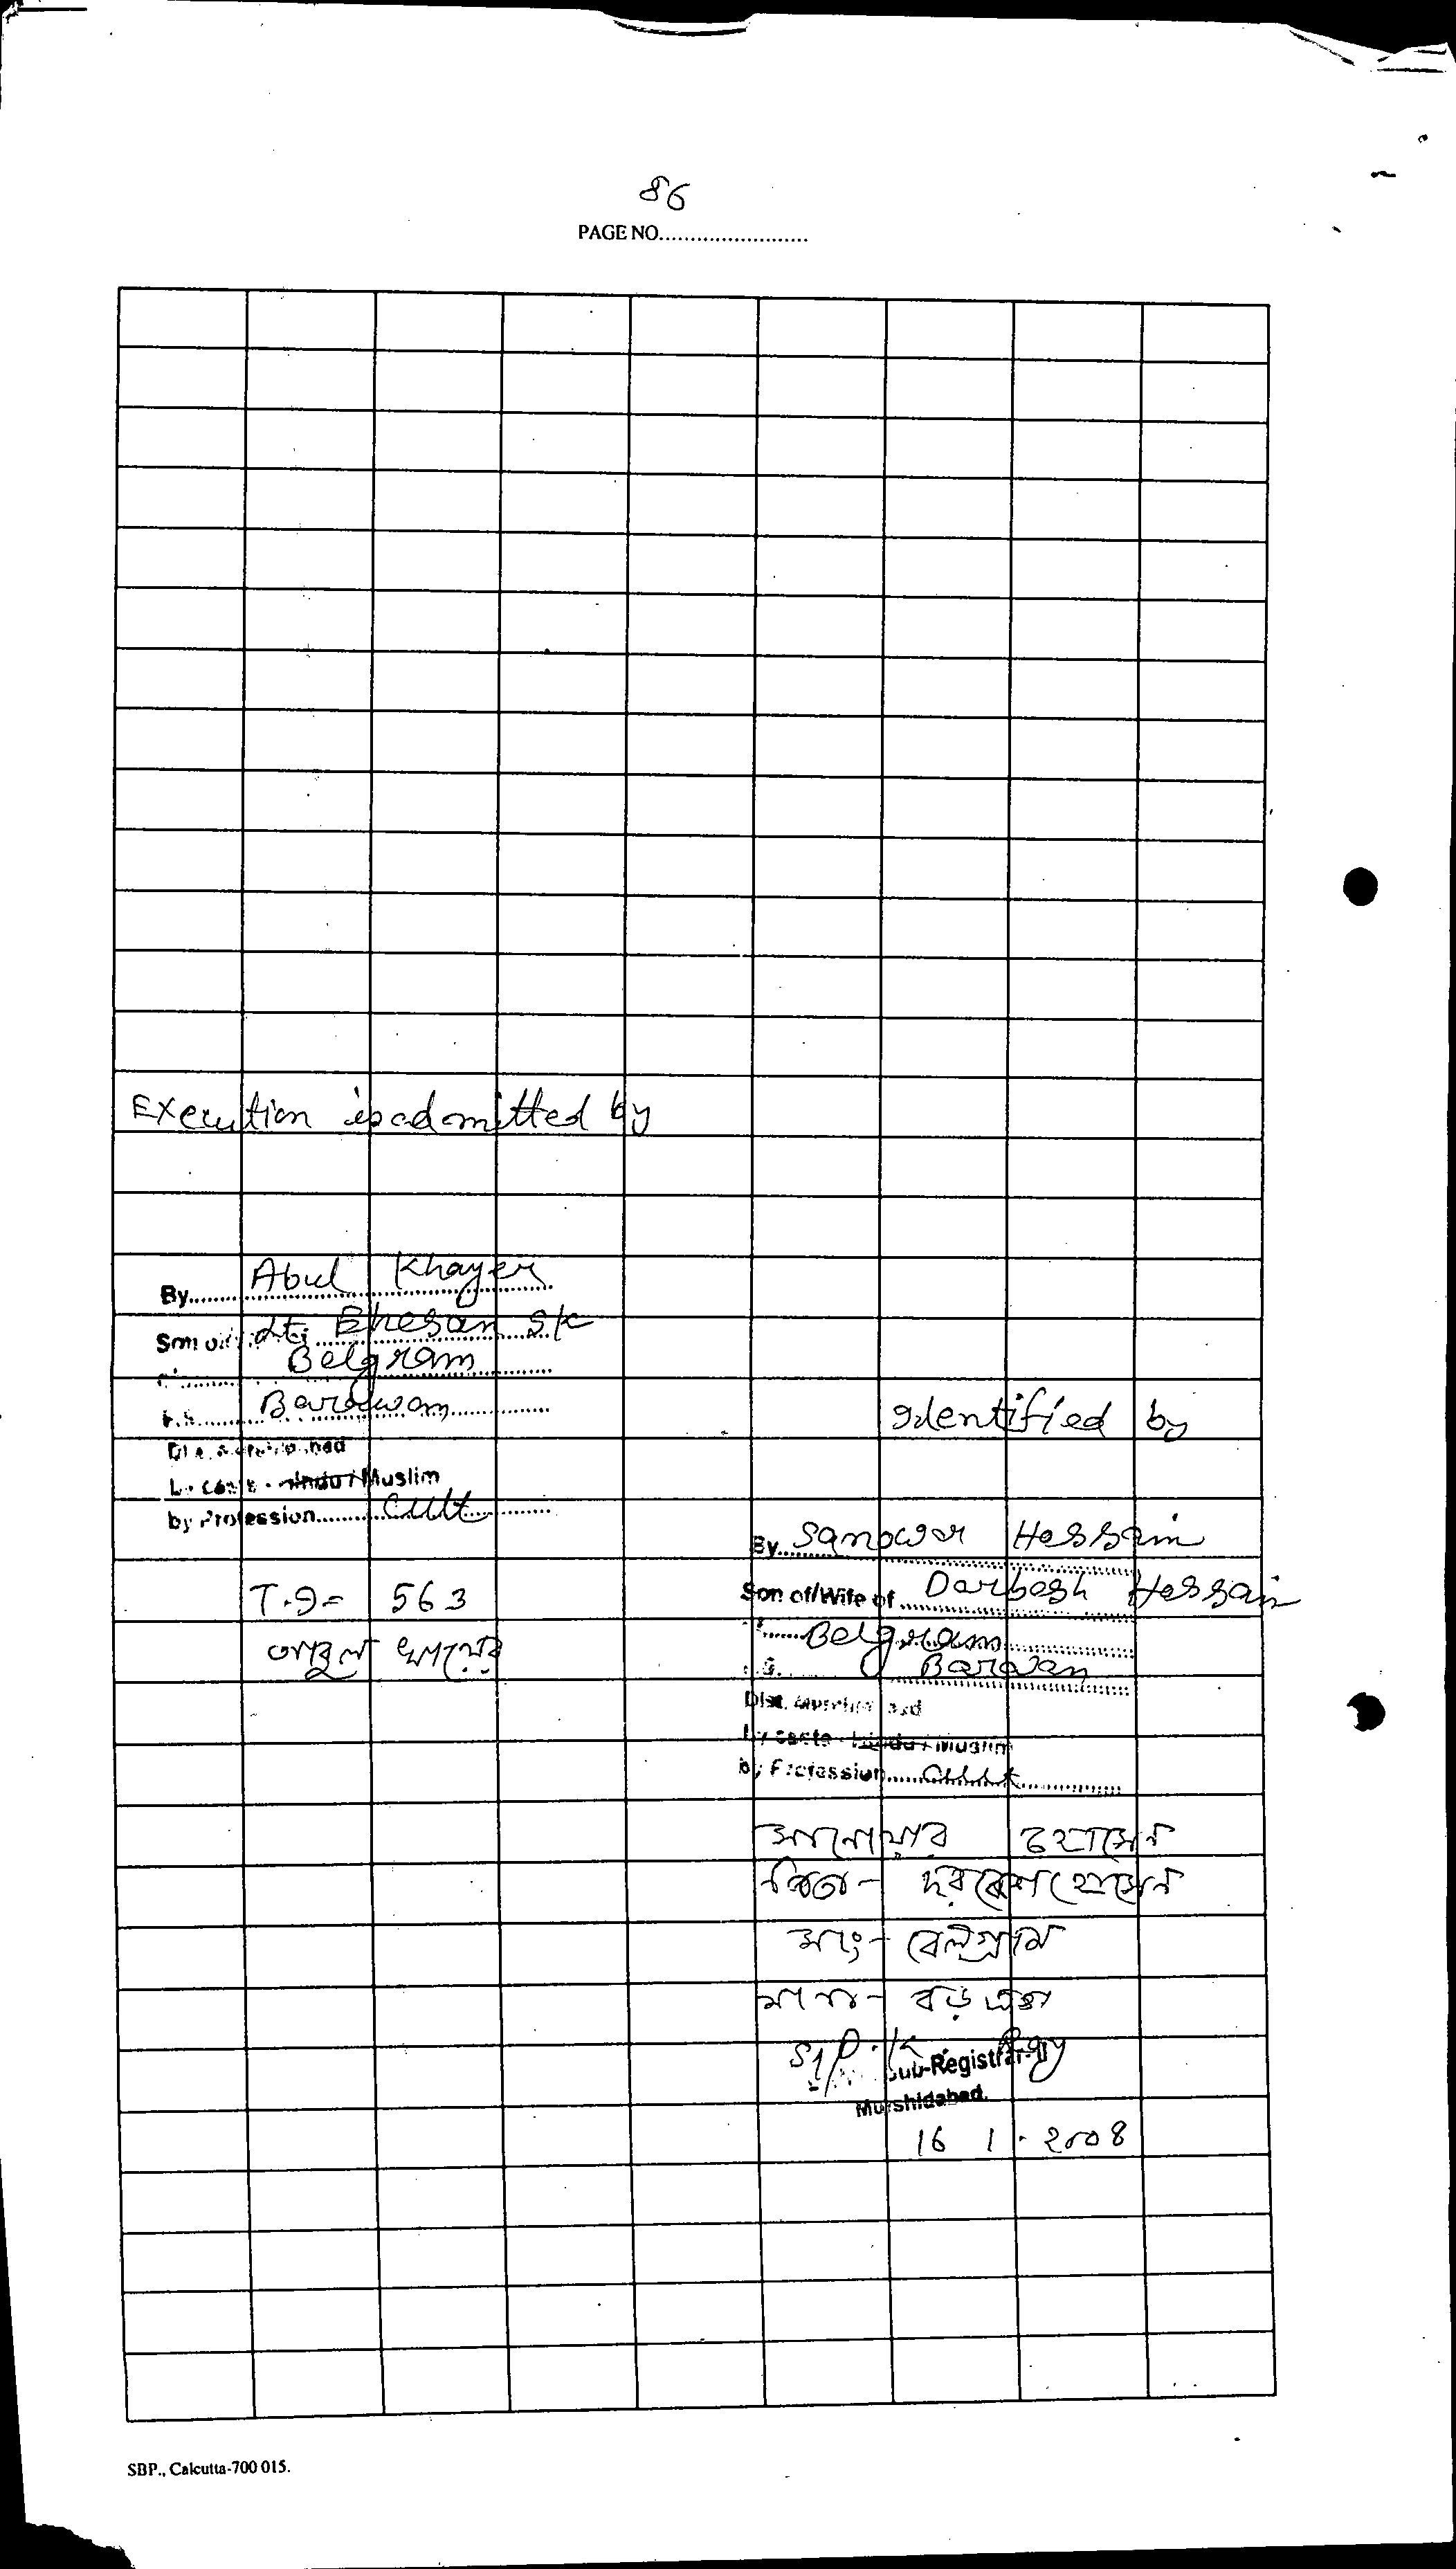 86
PAGE NO.........................
Execution is admitted by
By Abul Khayer
Son of Lt. Ehesan Sk
Belgram
P.S. Barowan
by caste - Hindu / Muslim
by Profession Cult
T.I = 563
আবুল খায়ের
Identified by
By Sanowar Hossain
Son of/Wife of Darbesh Hossain
Belgram
Barwan
by caste - Hindu / Muslim
by Profession Cult
সানোয়ার হোসেন
পিতা - দরবেশ হোসেন
সাং - বেলগ্রাম
থানা - বড়ঞা
Sub-Registrar-II
Murshidabad.
16 1 . 2008
SBP., Calcutta-700 015.